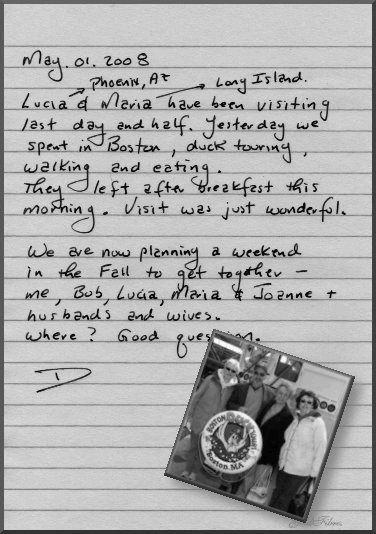 May. 01. 2008
Phoenix, AZ
Long Island.
Lucia & Maria have been visiting
last day and half. Yesterday we
spent in Boston, duck touring,
walking and eating.
They left after breakfast this
morning. Visit was just wonderful.
We are now planning a weekend
in the Fall to get together –
me, Bob, Lucia, Maria & Joanne +
husbands and wives.
Where? Good question.
D
BOSTON DUCK TOURS
Boston, MA